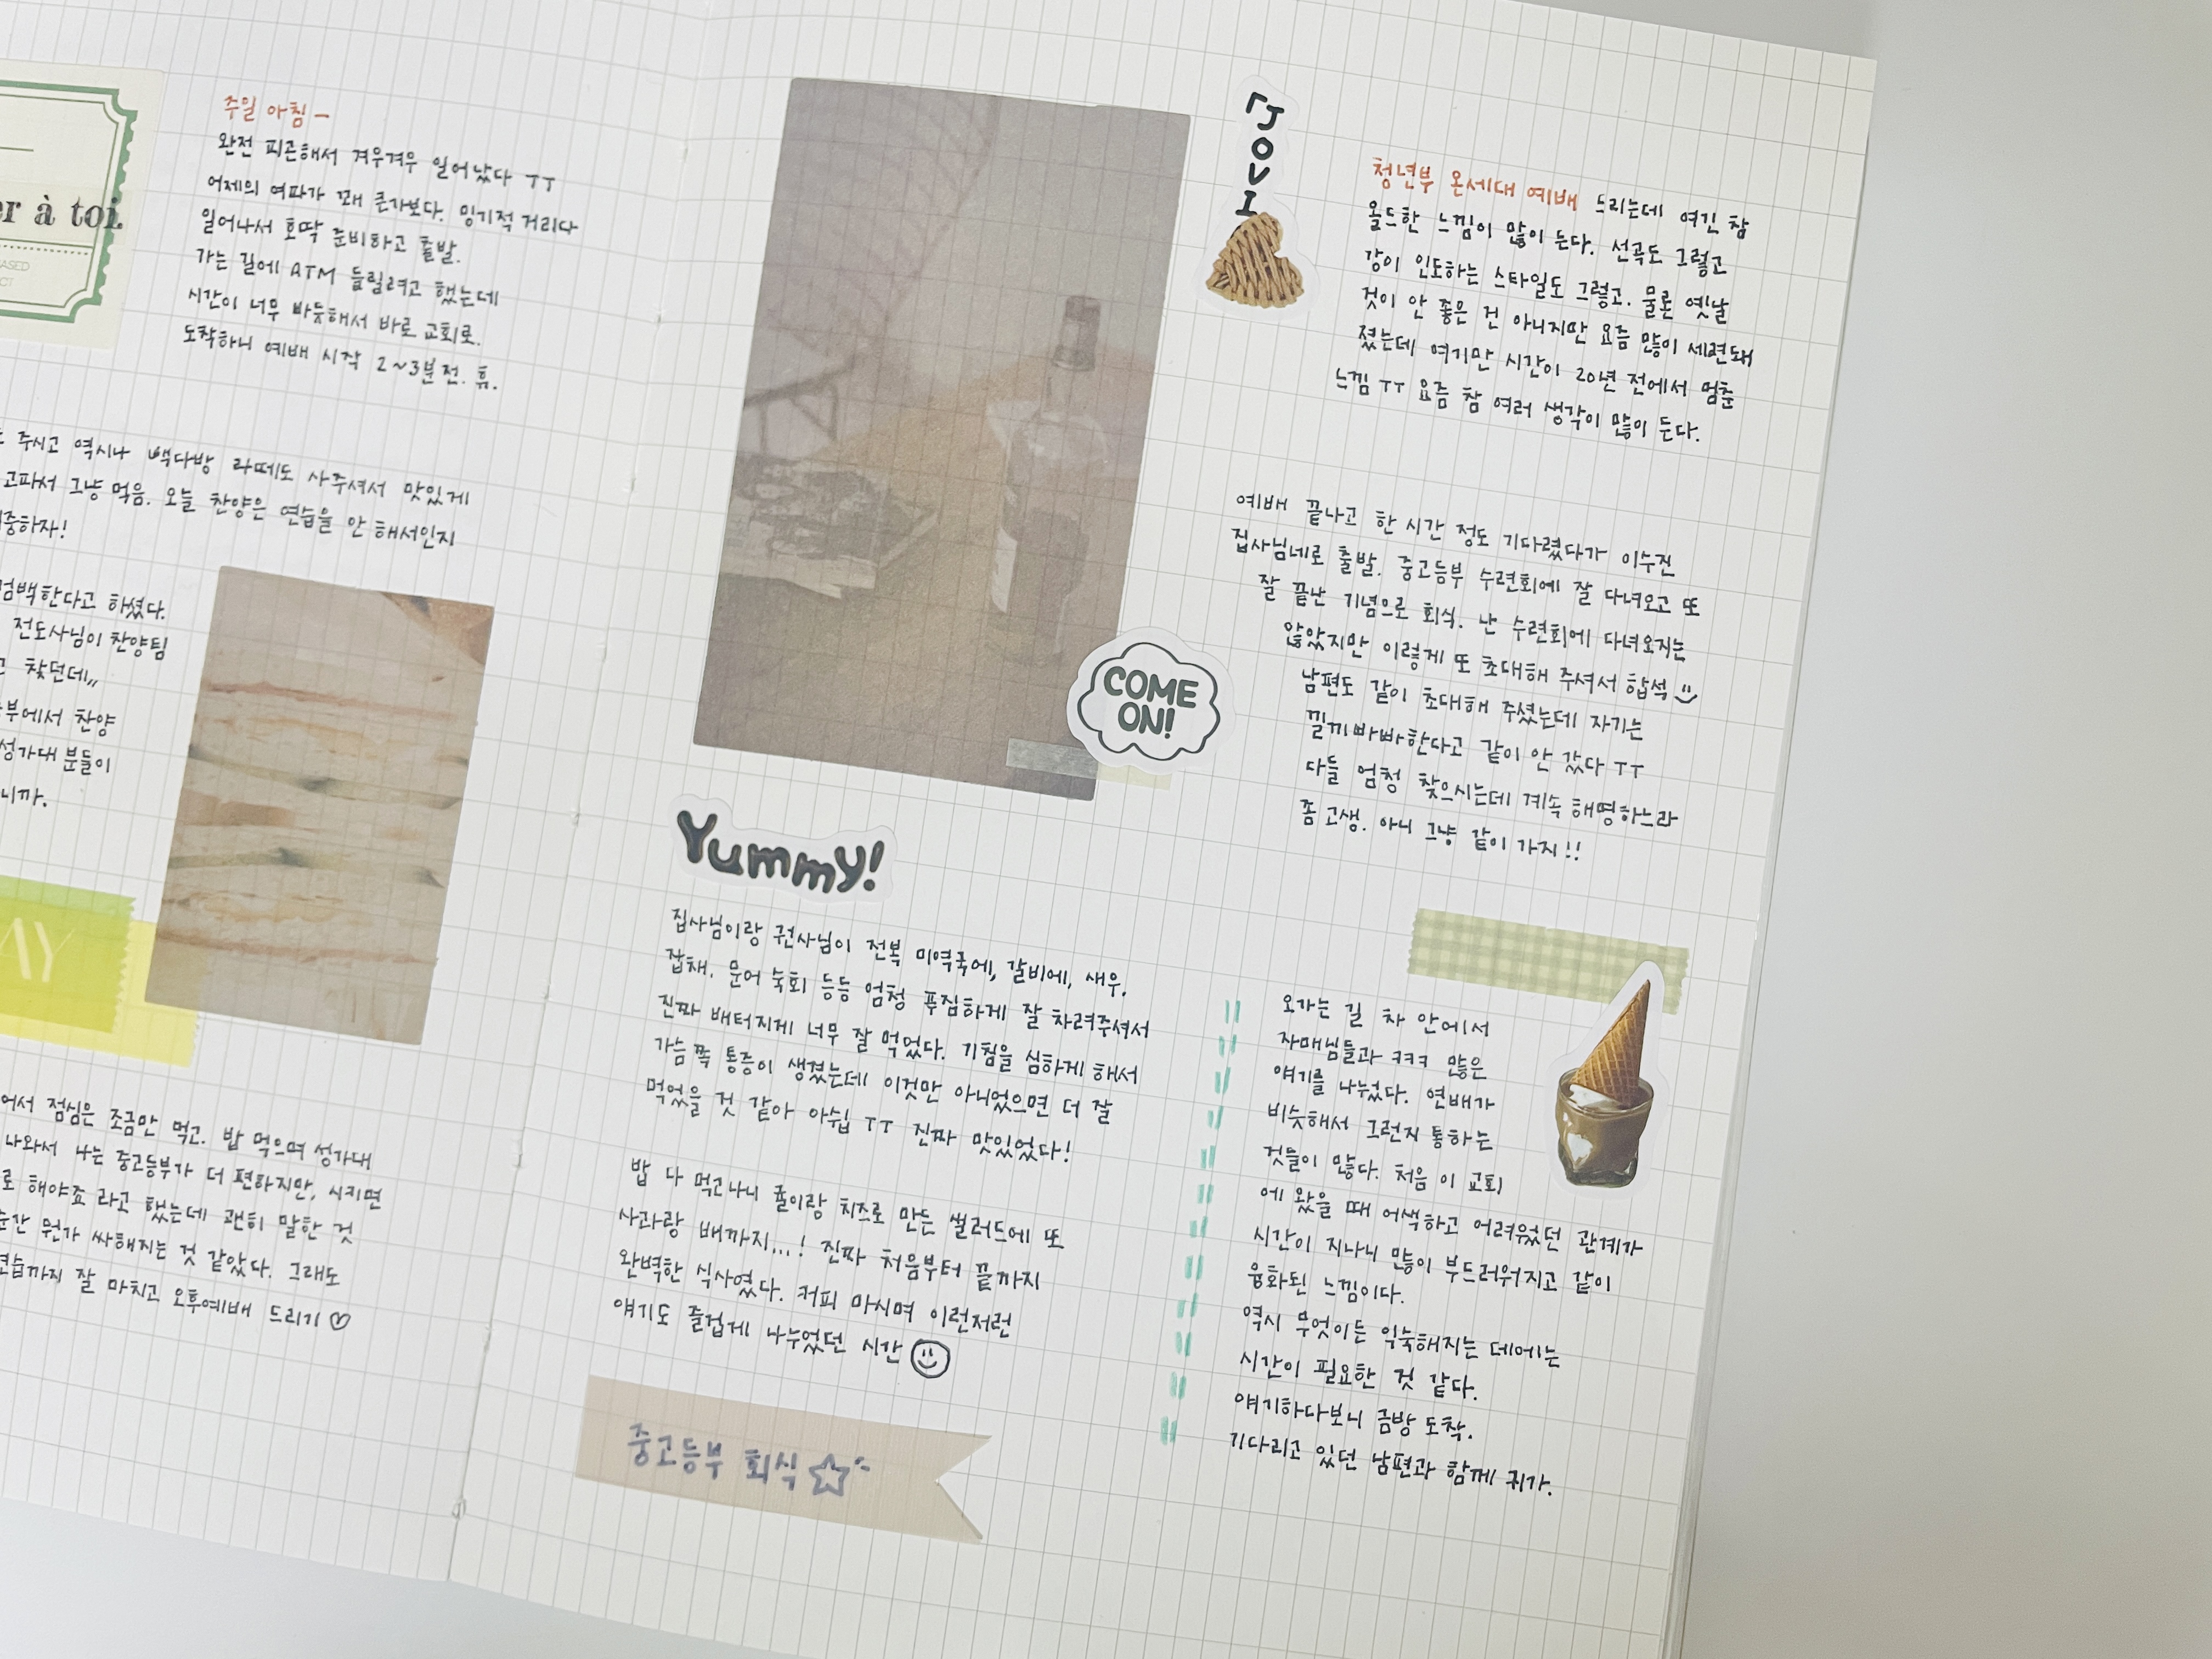 er à toi.
주일 아침 –
완전 피곤해서 겨우겨우 일어났다 ㅜㅜ
어제의 여파가 꽤 큰가보다. 밍기적 거리다
일어나서 호딱 준비하고 출발.
가는 길에 ATM 들릴려고 했는데
시간이 너무 빠듯해서 바로 교회로.
도착하니 예배 시작 2~3분 전. 휴.
주시고 역시나 빽다방 라떼도 사주셔서 맛있게
고파서 그냥 먹음. 오늘 찬양은 연습을 안 해서인지
중하자!
컴백한다고 하셨다.
전도사님이 찬양팀
고 찾던데,,
부에서 찬양
성가대 분들이
니까.
AY
어서 점심은 조금만 먹고. 밥 먹으며 성가대
나와서 나는 중고등부가 더 편하지만, 시키면
로 해야죠 라고 했는데 괜히 말한 것
순간 뭔가 싸해지는 것 같았다. 그래도
연습까지 잘 마치고 오후예배 드리기 ♡
「JOVI
청년부 온세대 예배 드리는데 여긴 참
올드한 느낌이 많이 든다. 선곡도 그렇고
같이 인도하는 스타일도 그렇고. 물론 옛날
것이 안 좋은 건 아니지만 요즘 많이 세련돼
졌는데 여기만 시간이 20년 전에서 멈춘
느낌 ㅜㅜ 요즘 참 여러 생각이 많이 든다.
예배 끝나고 한 시간 정도 기다렸다가 이수진
집사님네로 출발. 중고등부 수련회에 잘 다녀오고 또
잘 끝난 기념으로 회식. 난 수련회에 다녀오지는
않았지만 이렇게 또 초대해 주셔서 합석
남편도 같이 초대해 주셨는데 자기는
낄끼빠빠한다고 같이 안 갔다 ㅜㅜ
다들 엄청 찾으시는데 계속 해명하느라
좀 고생. 아니 그냥 같이 가지!!
COME
ON!
Yummy!
집사님이랑 권사님이 전복 미역국에, 갈비에, 새우,
잡채, 문어 숙회 등등 엄청 푸짐하게 잘 차려주셔서
진짜 배터지게 너무 잘 먹었다. 기침을 심하게 해서
가슴 쪽 통증이 생겼는데 이것만 아니었으면 더 잘
먹었을 것 같아 아쉽 ㅜㅜ 진짜 맛있었다!
밥 다 먹고나니 귤이랑 치즈로 만든 샐러드에 또
사과랑 배까지...! 진짜 처음부터 끝까지
완벽한 식사였다. 커피 마시며 이런저런
얘기도 즐겁게 나누었던 시간
중고등부 회식 ☆
오가는 길 차 안에서
자매님들과 ㅋㅋㅋ 많은
얘기를 나눴다. 연배가
비슷해서 그런지 통하는
것들이 많다. 처음 이 교회
에 왔을 때 어색하고 어려웠던 관계가
시간이 지나니 많이 부드러워지고 같이
융화된 느낌이다.
역시 무엇이든 익숙해지는 데에는
시간이 필요한 것 같다.
얘기하다보니 금방 도착.
기다리고 있던 남편과 함께 귀가.